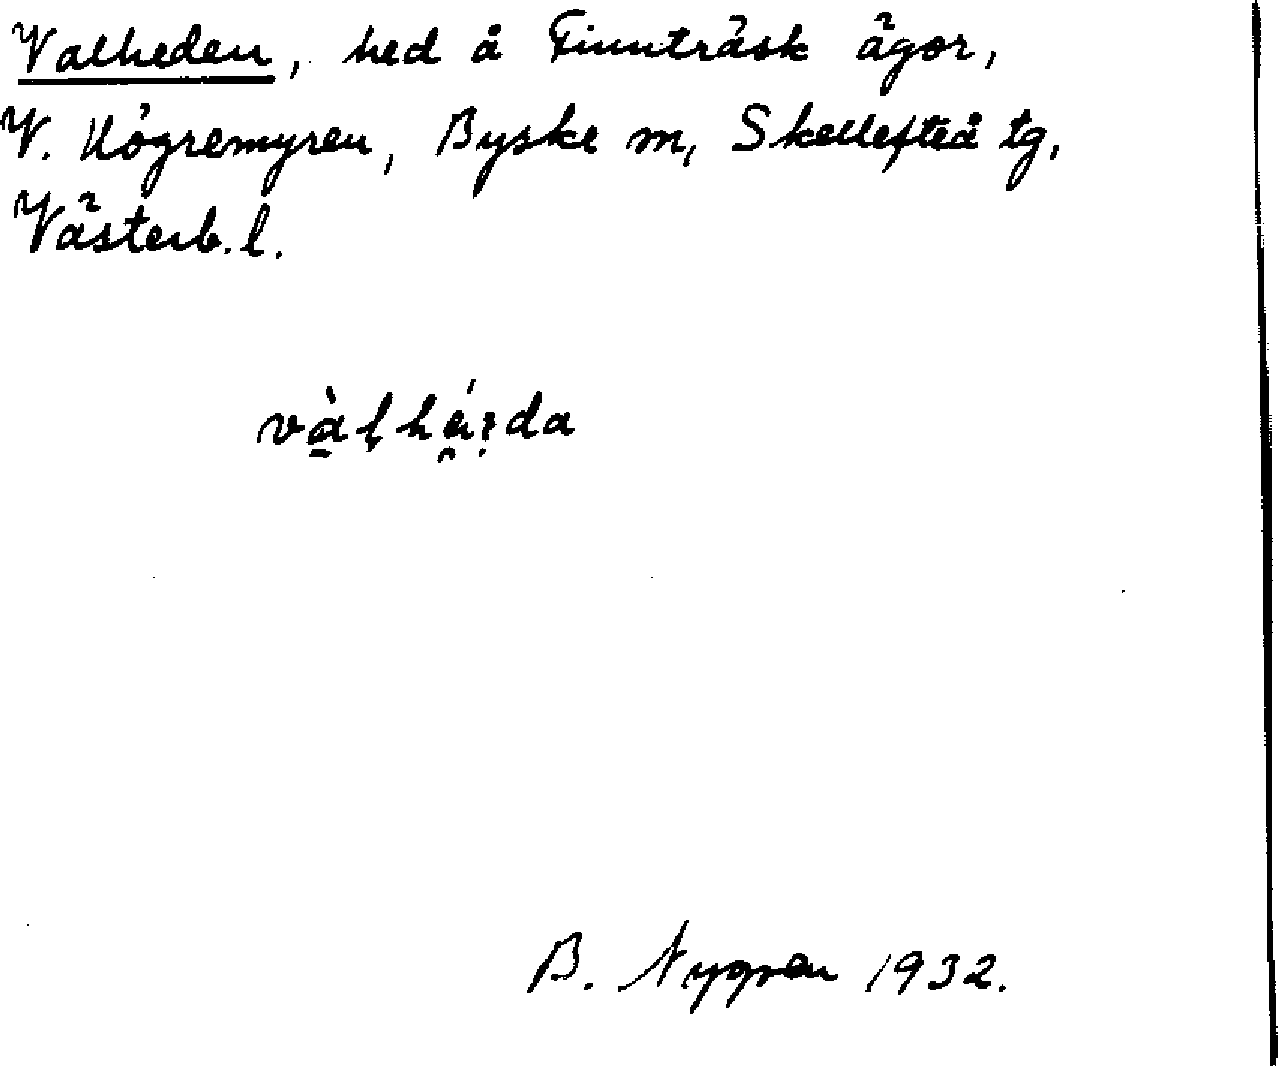 Valheden, hed å Finnträsk ägor,
V. Högremyren, Byske m, Skellefteå tg,
Västerb. l.
B. Nygren 1932.